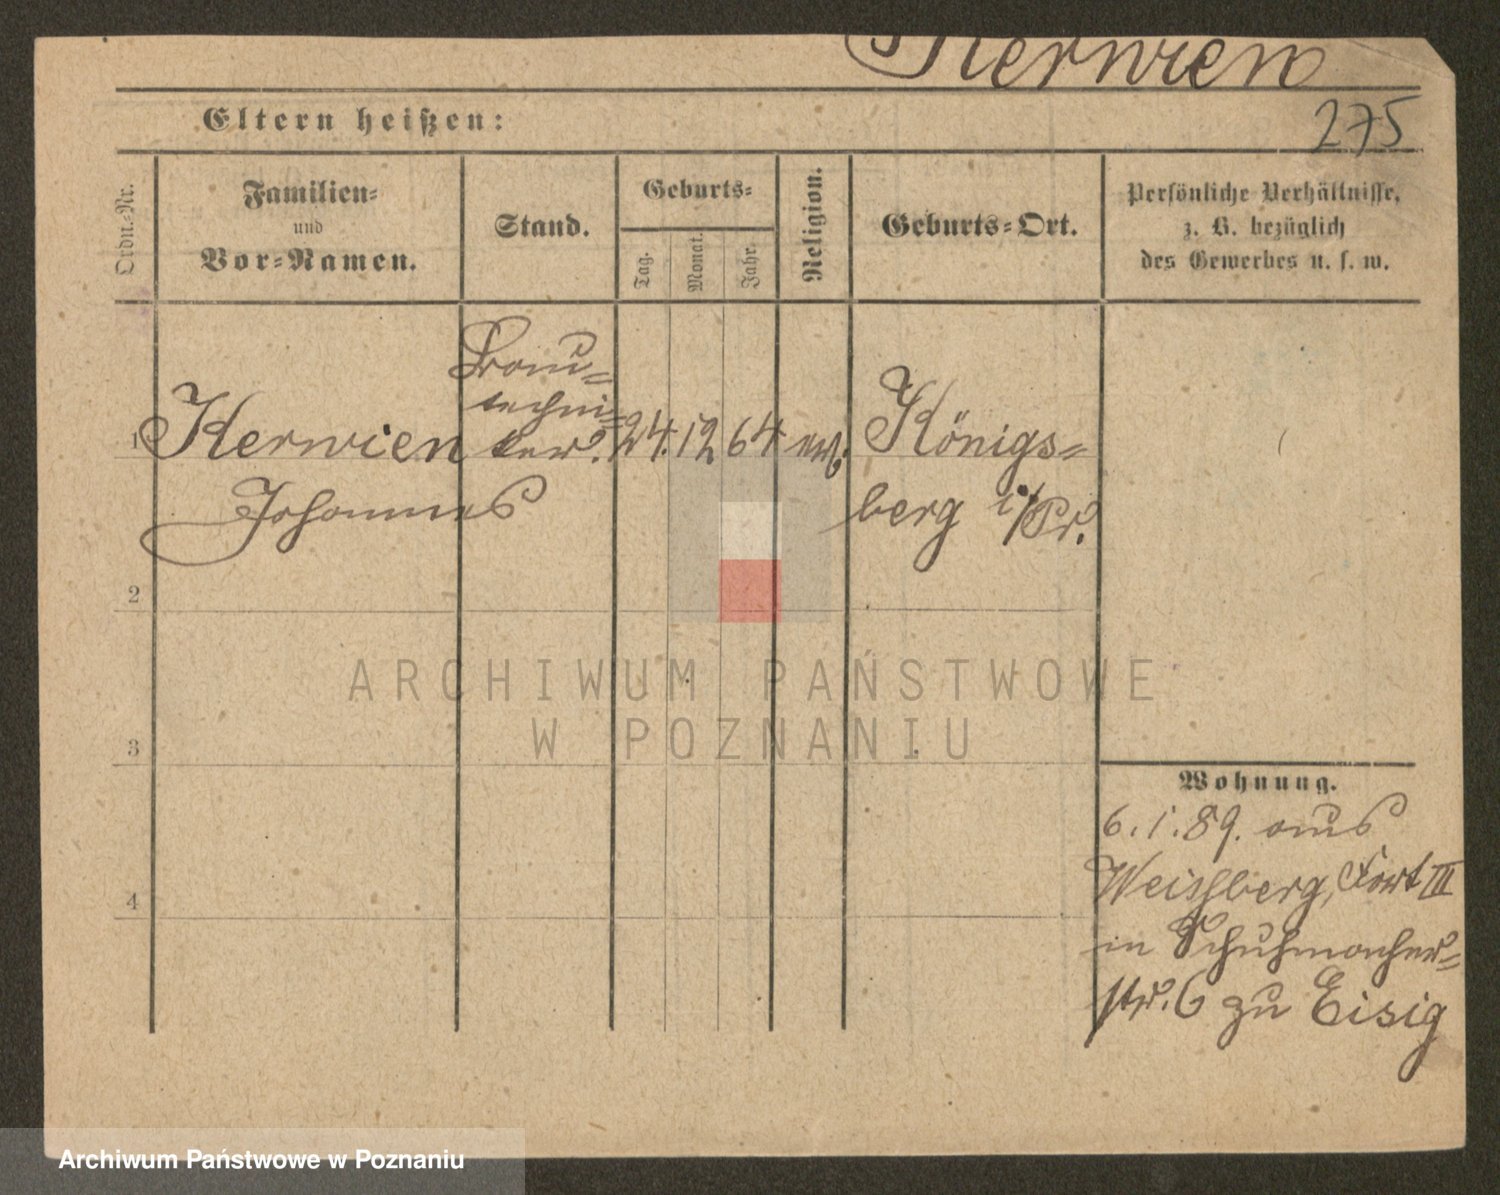 Kerwien
275
Eltern heißen:
Ordn.-Nr.
Familien-
und
Vor-Namen.
Stand.
Geburts-
Tag.
Monat.
Jahr.
Religion.
Geburts-Ort.
Persönliche Verhältnisse,
z. B. bezüglich
des Gewerbes u. s. w.
1
Kerwien
Johannes
Bau-
techni-
ker.
24.
12
64
ev.
Königs-
berg i/Pr.
2
3
4
Wohnung.
6.1.89. aus
Weissberg, Fort III
in Schuhmacher-
str. 6 zu Eisig
ARCHIWUM PAŃSTWOWE
W POZNANIU
Archiwum Państwowe w Poznaniu